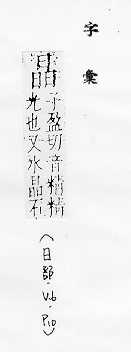 字彙
晶
子盈切音精精
光也又水晶石
(日部.V.6.P10)